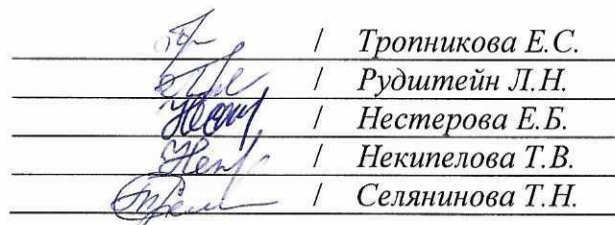 / Тропникова Е.С.
/ Рудштейн Л.Н.
/ Нестерова Е.Б.
/ Некипелова Т.В.
/ Селянинова Т.Н.